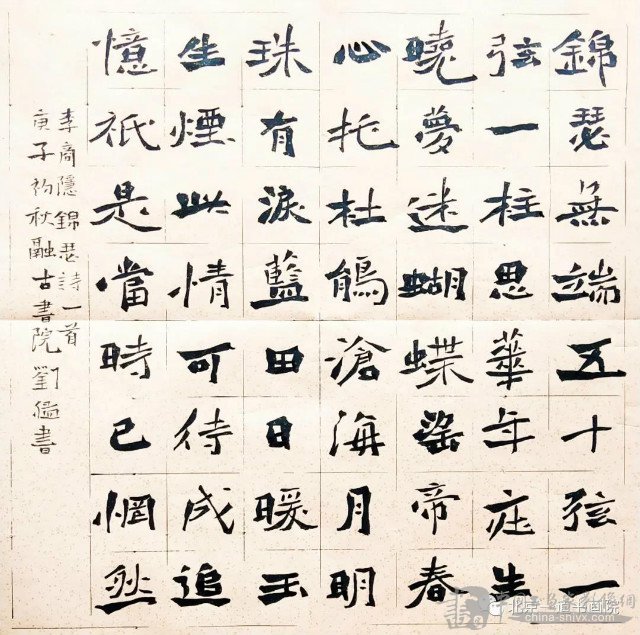 錦瑟無端五十弦一
弦一柱思華年庄生
曉夢迷蝴蝶望帝春
心托杜鵑滄海月明
珠有淚藍田日暖玉
生煙此情可待成追
憶祇是當時已惘然
李商隱錦瑟詩一首
庚子初秋融古書院劉書